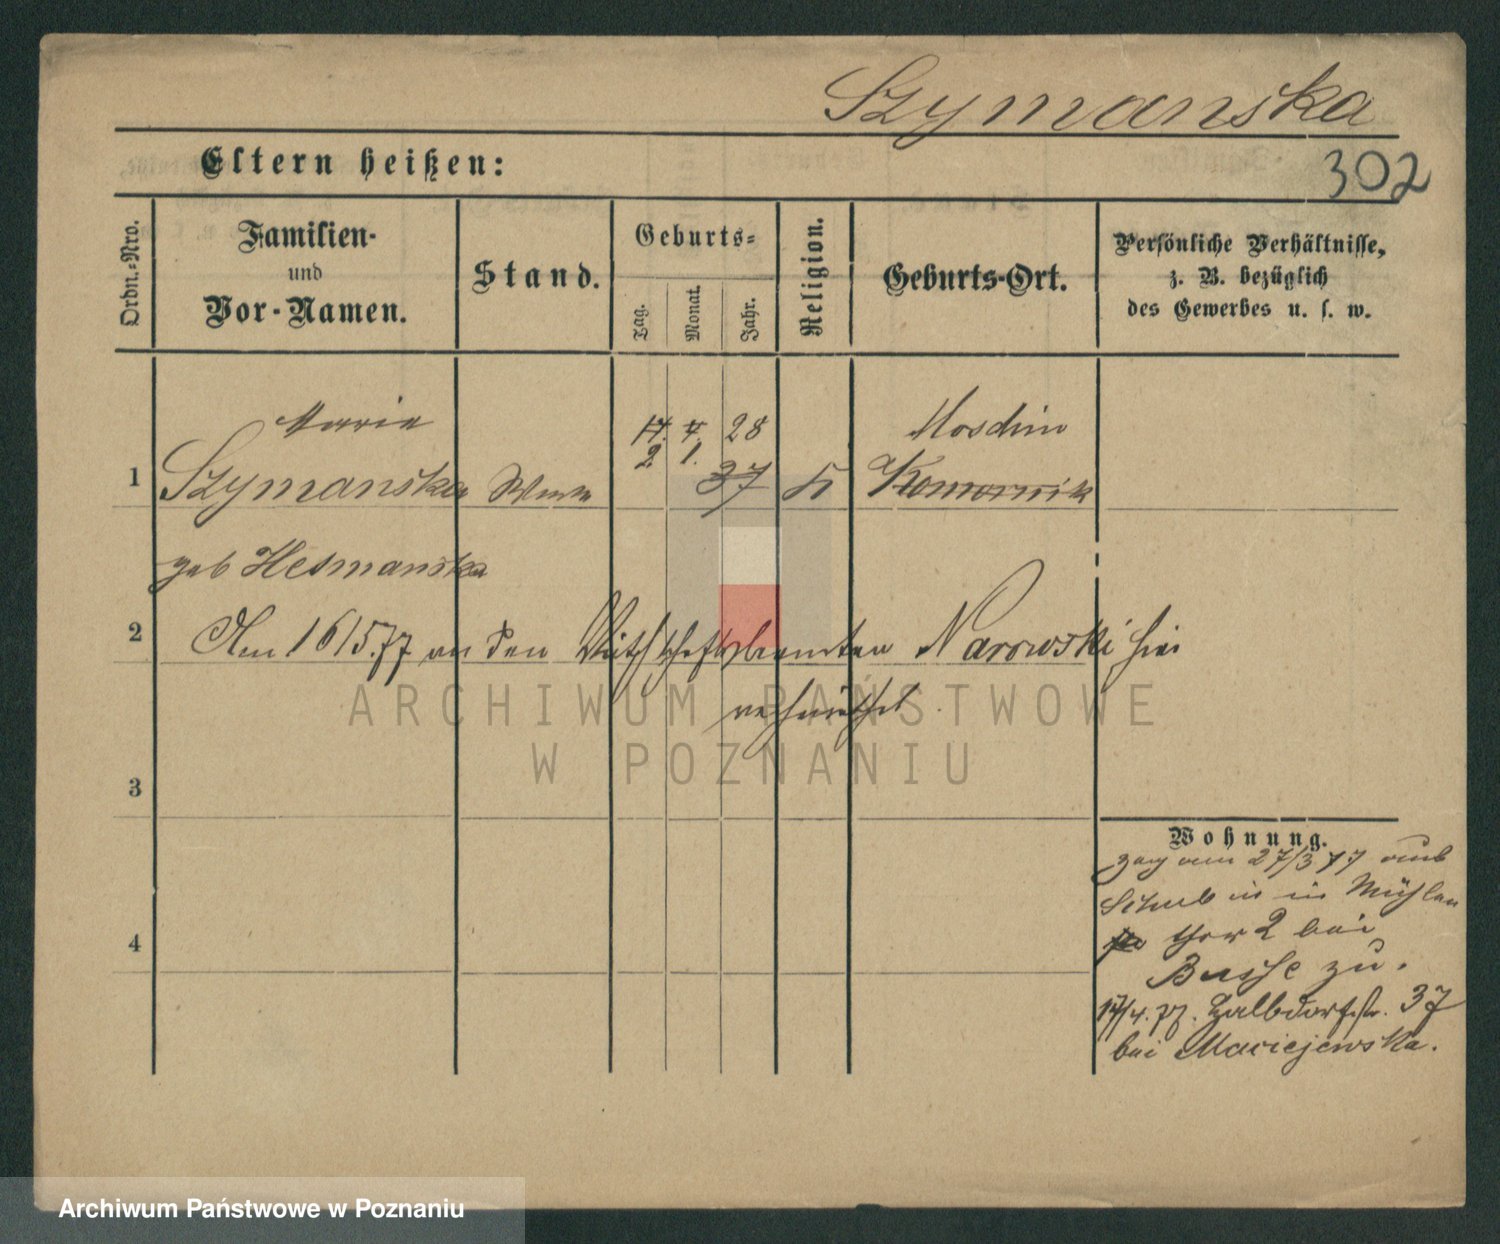 Szymanska
302
Eltern heißen:
Ordn.-Nro.
Familien-
und
Vor-Namen.
Stand.
Geburts-
Tag.
Monat.
Jahr.
Religion.
Geburts-Ort.
Persönliche Verhältnisse,
z. B. bezüglich
des Gewerbes u. s. w.
Marie
17. 4. 28
Moschin
2 1.
1 Szymanska 37 K Komornik
geb Hesmanska
2 Am 16/5.77 an den Wirthschaftsbeamten Narowski hier
verheirathet.
ARCHIWUM PAŃSTWOWE
W POZNANIU
3
4
Wohnung.
zog am 27/3 77 aus
in Mühlen
thor 2 bei
Busse zu.
17/4. 77. Halbdorfstr. 37
bei Maciejewska.
Archiwum Państwowe w Poznaniu